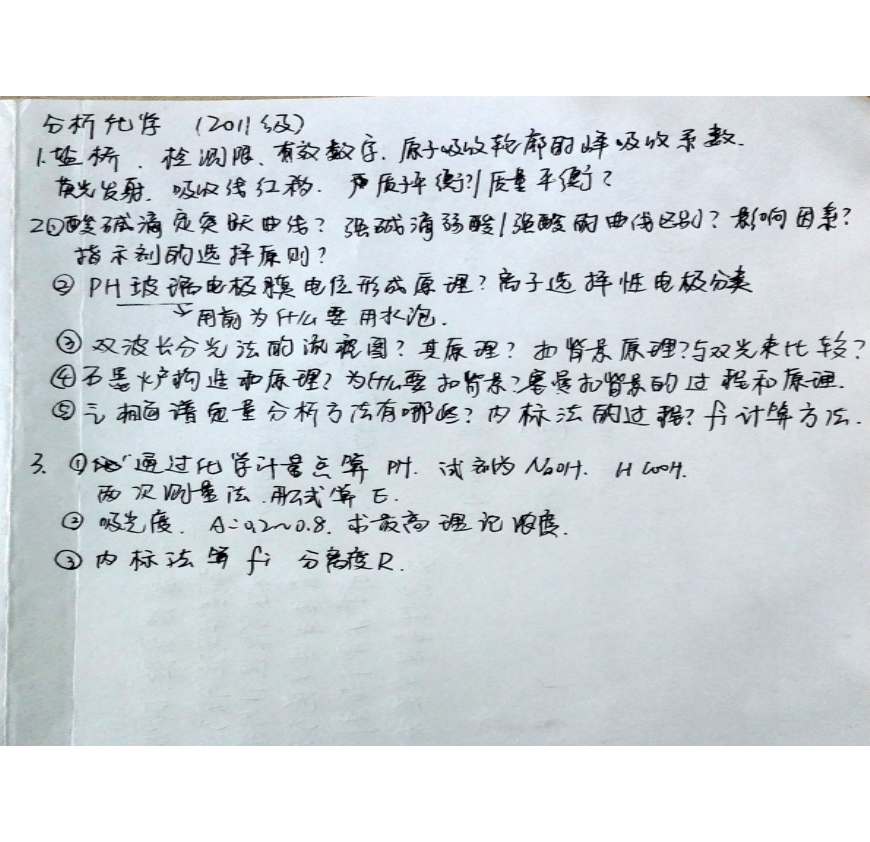 分析化学 (2011级)
1. 盐桥、检测限、有效数字、原子吸收轮廓的峰吸收系数.
荧光发射、吸收线红移. 质子平衡?/质量平衡?
2.①酸碱滴定突跃曲线? 强碱滴弱酸/强酸的曲线区别? 影响因素?
指示剂的选择原则?
② PH玻璃电极膜电位形成原理? 离子选择性电极分类
用前为什么要用水泡.
③ 双波长分光法的流视图? 其原理? 扣背景原理?与双光束比较?
④ 石墨炉构造和原理? 为什么要扣背景? 塞曼扣背景的过程和原理.
⑤ 气相色谱定量分析方法有哪些? 内标法的过程? fi 计算方法.
3. ① 通过化学计量点算 PH. 试剂为 NaOH. HCOOH.
两次测量法.用试算 E.
② 吸光度. A=0.2~0.8. 求最高理论浓度.
③ 内标法算 fi 分离度R.